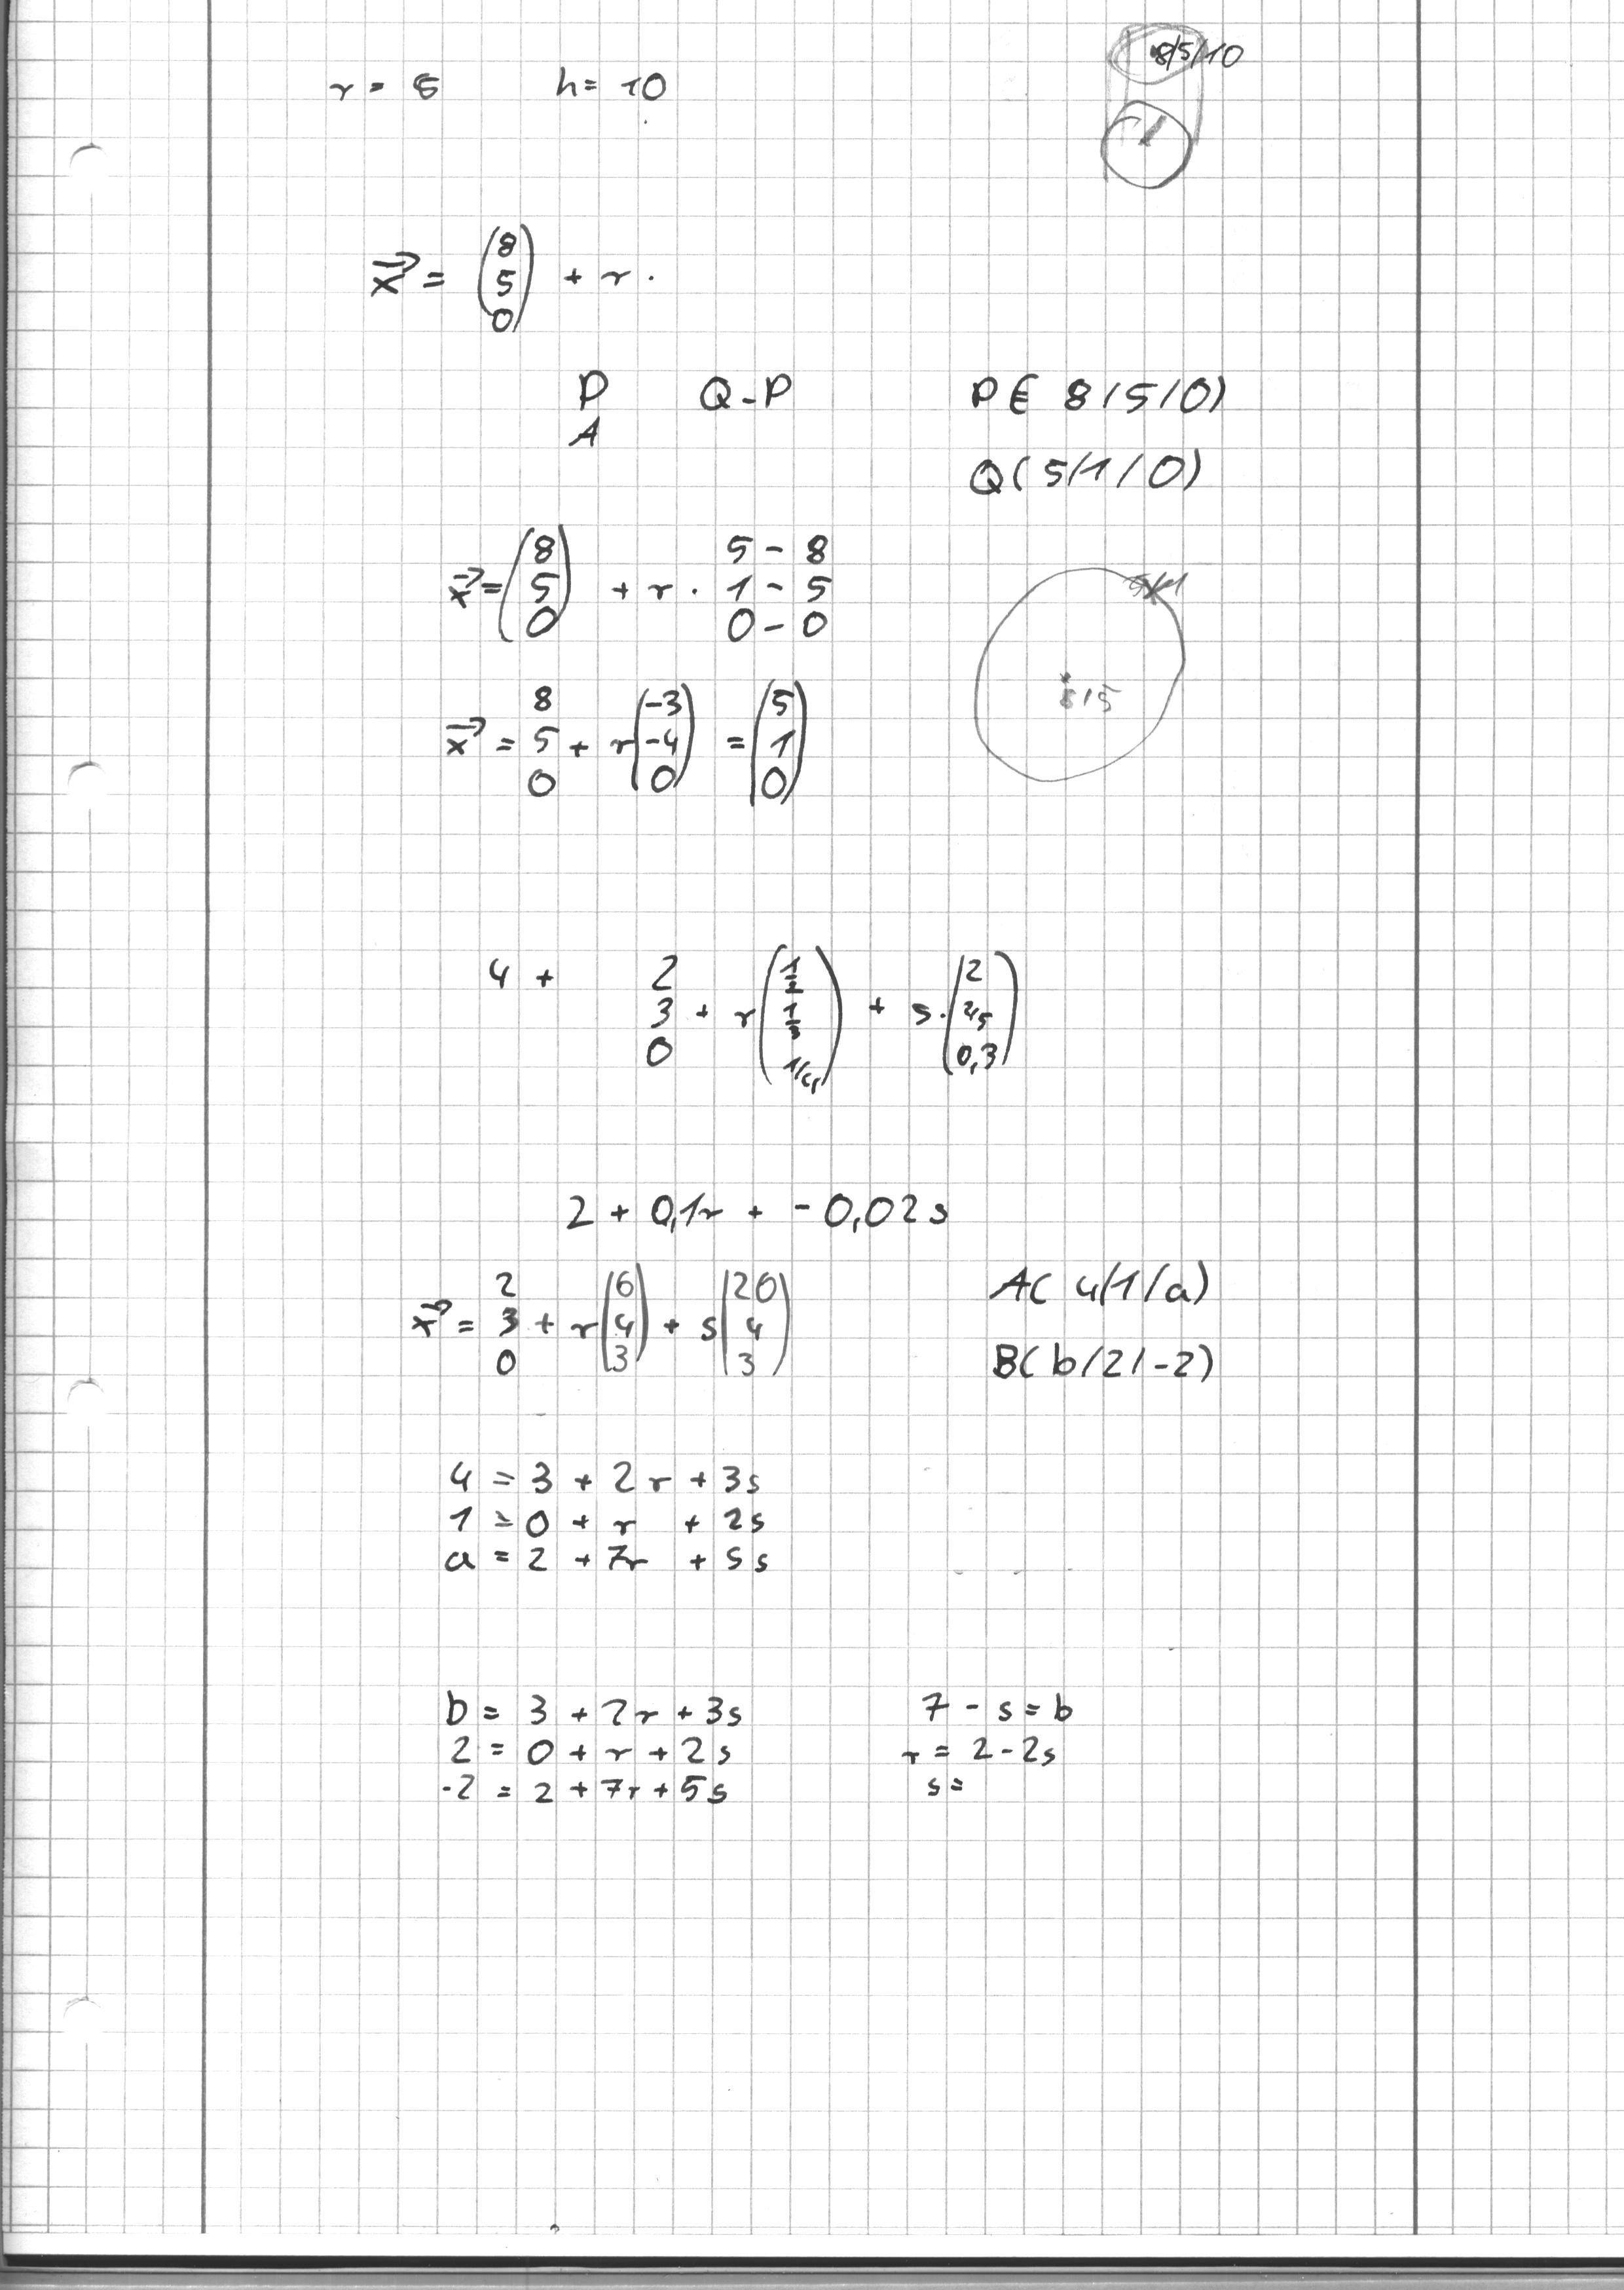 8/5/10
r = 5 h = 10
x⃗ = (8 5 0) + r ·
P Q-P P∈ 8/5/0)
A
Q( 5/1/0)
x⃗ = (8 5 0) + r · 5-8 1-5 0-0
8/5
x⃗ = 8 5 0 + r(-3 -4 0) = (5 1 0)
4 + 2 3 0 + r( 1/4) + s·(2 0,3)
2 + 0,1r + -0,02s
x⃗ = 2 3 0 + r(6 4 3) + s(20 4 3)
A( 4/1/a)
B( b/2/-2)
4 = 3 + 2r + 3s
1 = 0 + r + 2s
a = 2 + 7r + 5s
b = 3 + 2r + 3s 7 - s = b
2 = 0 + r + 2s r = 2-2s
-2 = 2 + 7r + 5s s =